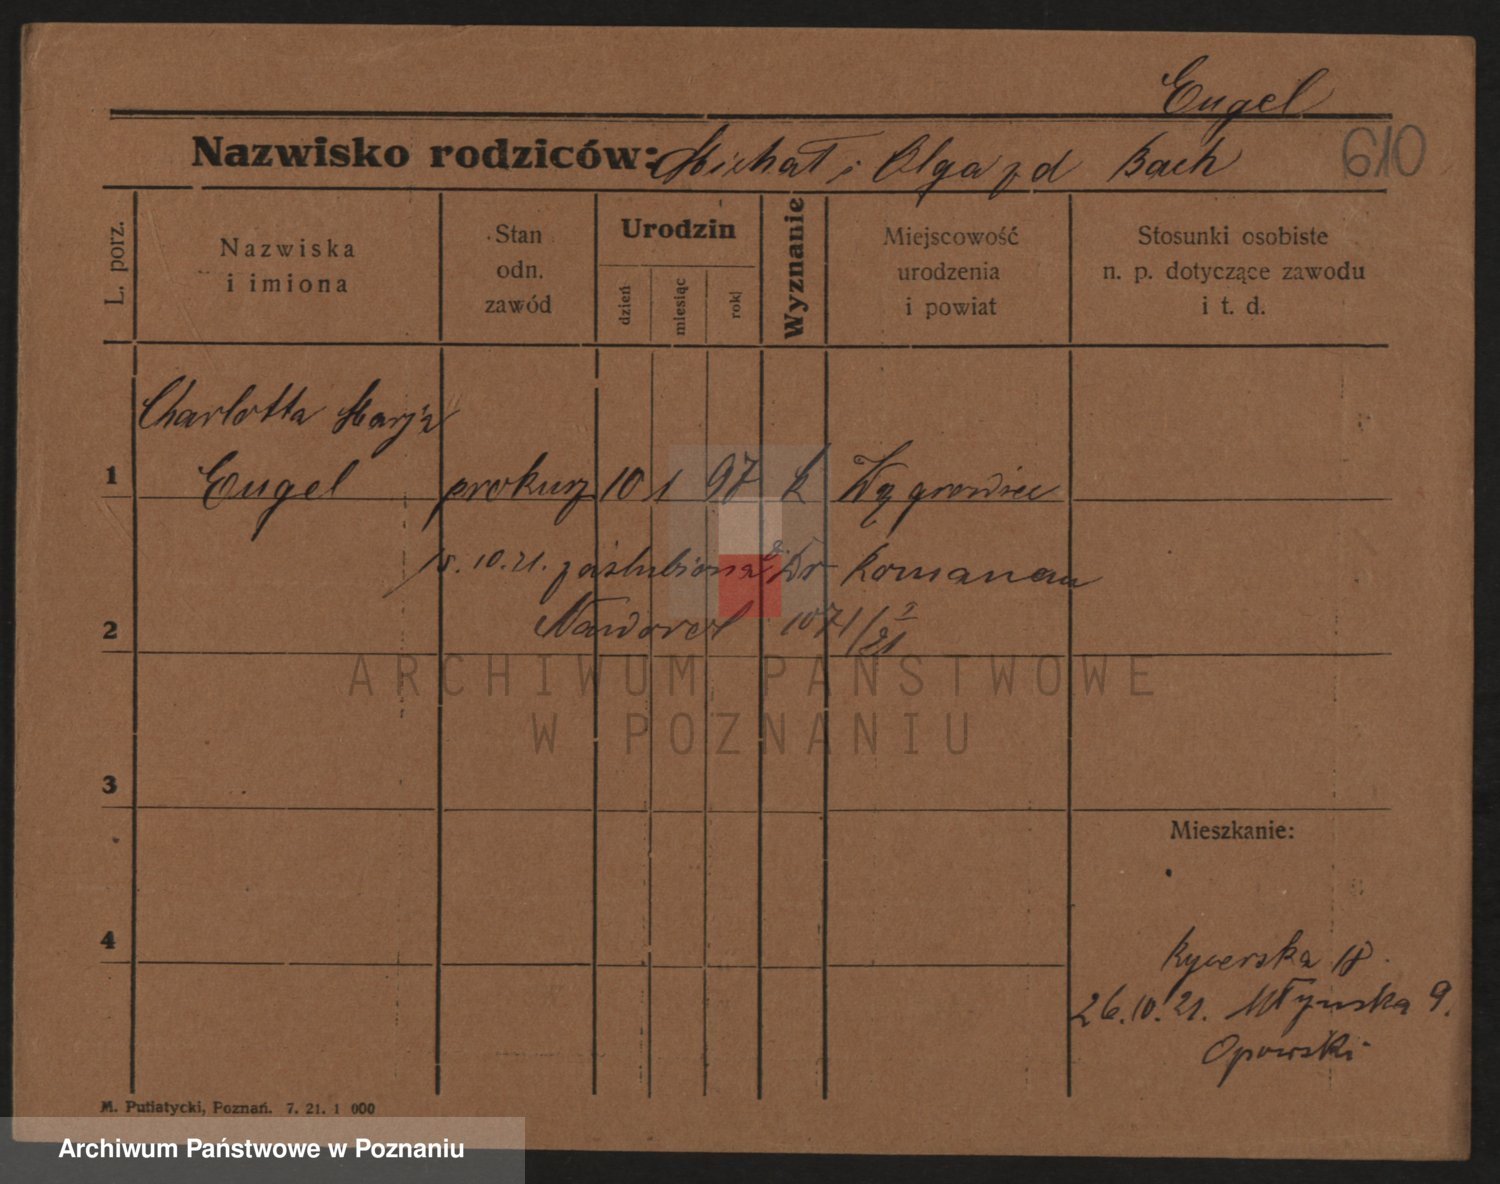 Engel
Nazwisko rodziców: Michał i Olga z d Bach
610
L. porz.
Nazwiska
i imiona
Stan
odn.
zawód
Urodzin
dzień
miesiąc
rok
Wyznanie
Miejscowość
urodzenia
i powiat
Stosunki osobiste
n. p. dotyczące zawodu
i t. d.
Charlotta Marja
1 Engel prokurz 10 1 97 k Wągrowiec
15.10.21. zaślubiona Dr Romanem
2
1071/21
ARCHIWUM PAŃSTWOWE
W POZNANIU
3
Mieszkanie:
4
Rycerska 18.
26.10.21. Młyńska 9.
M. Putiatycki, Poznań. 7. 21. 1 000
Archiwum Państwowe w Poznaniu